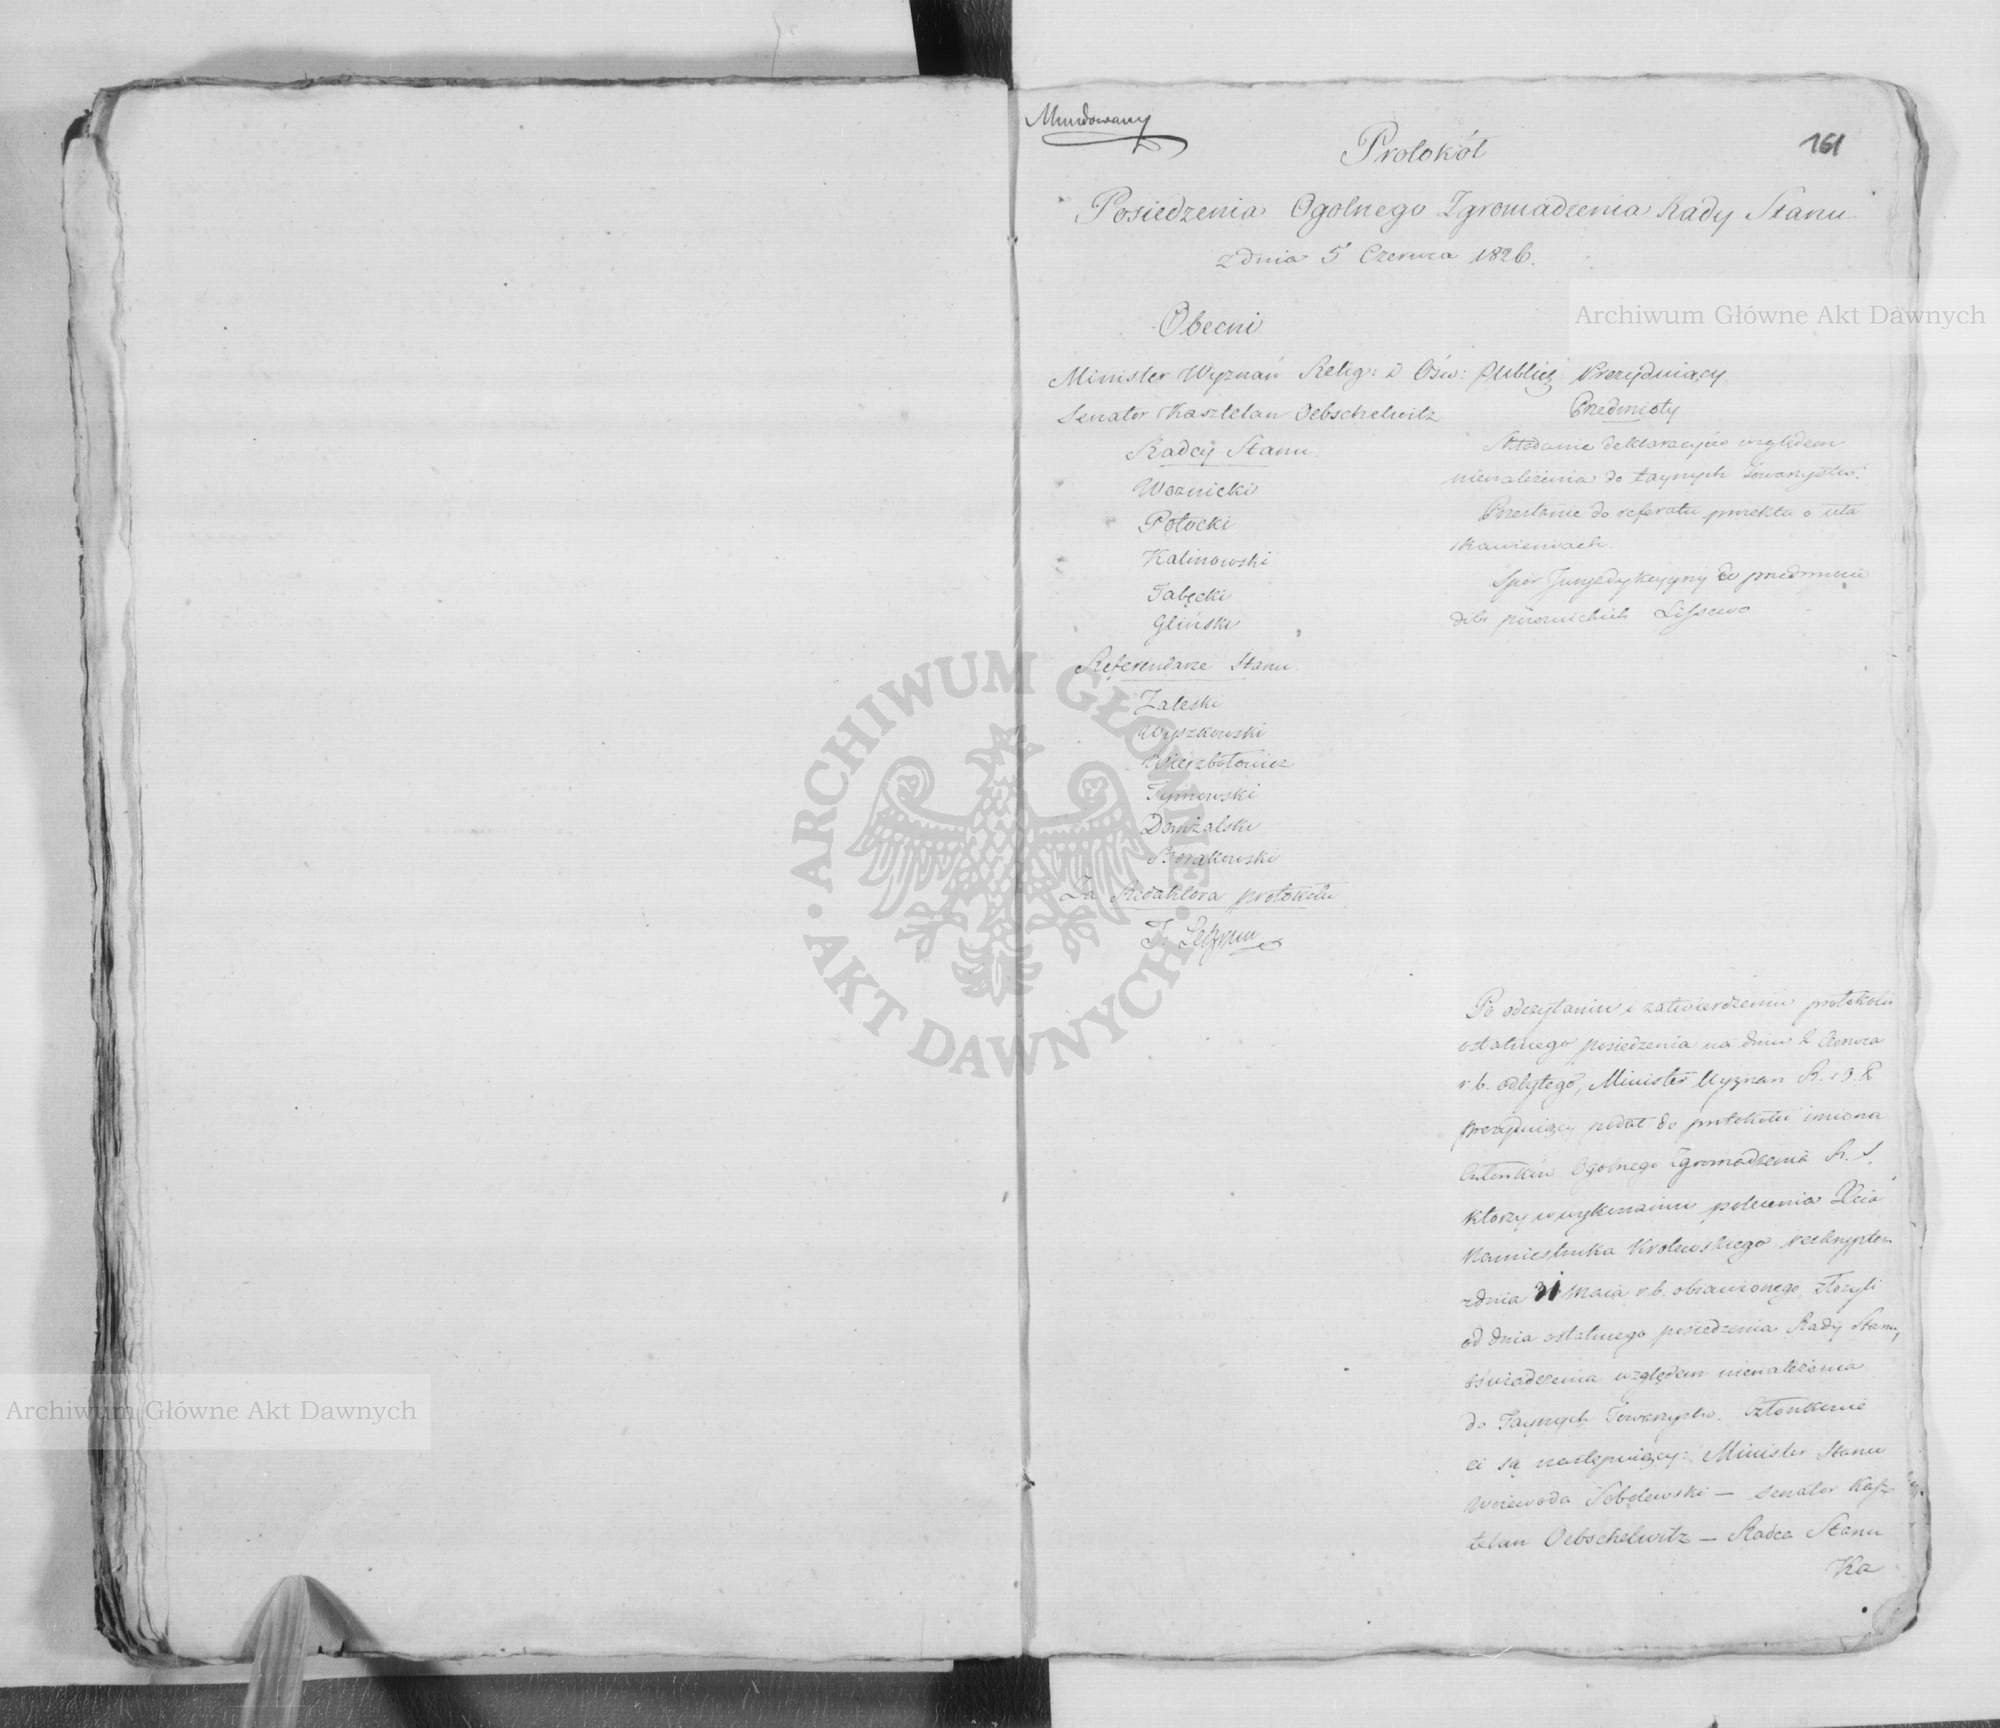 Mundowany
161
Protokół
Posiedzenia Ogolnego Zgromadzenia Rady Stanu
z dnia 5 Czerwca 1826.
Obecni
Minister Wyznań Relig: i Ośw: Publicz Prezyduiący.
Senator Kasztelan Oebschelwitz
Radcy Stanu.
Woznicki
Potocki
Kalinowski
Tabęcki
Gliński
Referendarze Stanu.
Zaleski
Wyszkowski
Wierzbołowicz
Tymowski
Domżalski
Borakowski
Za Redaktora protokołu
Przedmioty
Składanie deklaracyiów względem
nienależenia do taynych Towarzystw.
Przesłanie do referatu proiektu o uła
skawieniach.
Spór Jurysdykcyyny w przedmiocie
dóbr pisowickich Lissewo
Po odczytaniu i zatwierdzeniu protokołu
ostatniego posiedzenia na dniu 2 Czerwca
r. b. odbytego, Minister Wyznań R. i O. P.
prezyduiący podał do protokołu imiona
Członków Ogolnego Zgromadzenia R. S.
ktorzy w wykonaniu polecenia Xcia
Namiestnika Krolewskiego reskryptem
z dnia 31 Maia r. b. obiawionego, złożyli
od dnia ostatniego posiedzenia Rady Stanu,
oświadczenia względem nienależenia
do Taynych Towarzystw. Członkowie
ci są następuiący: Minister Stanu
Woiewoda Sobolewski — Senator Kasz-
telan Oebschelwitz — Radca Stanu
Ka
Archiwum Główne Akt Dawnych
Archiwum Główne Akt Dawnych
ARCHIWUM GŁÓWNE
AKT DAWNYCH